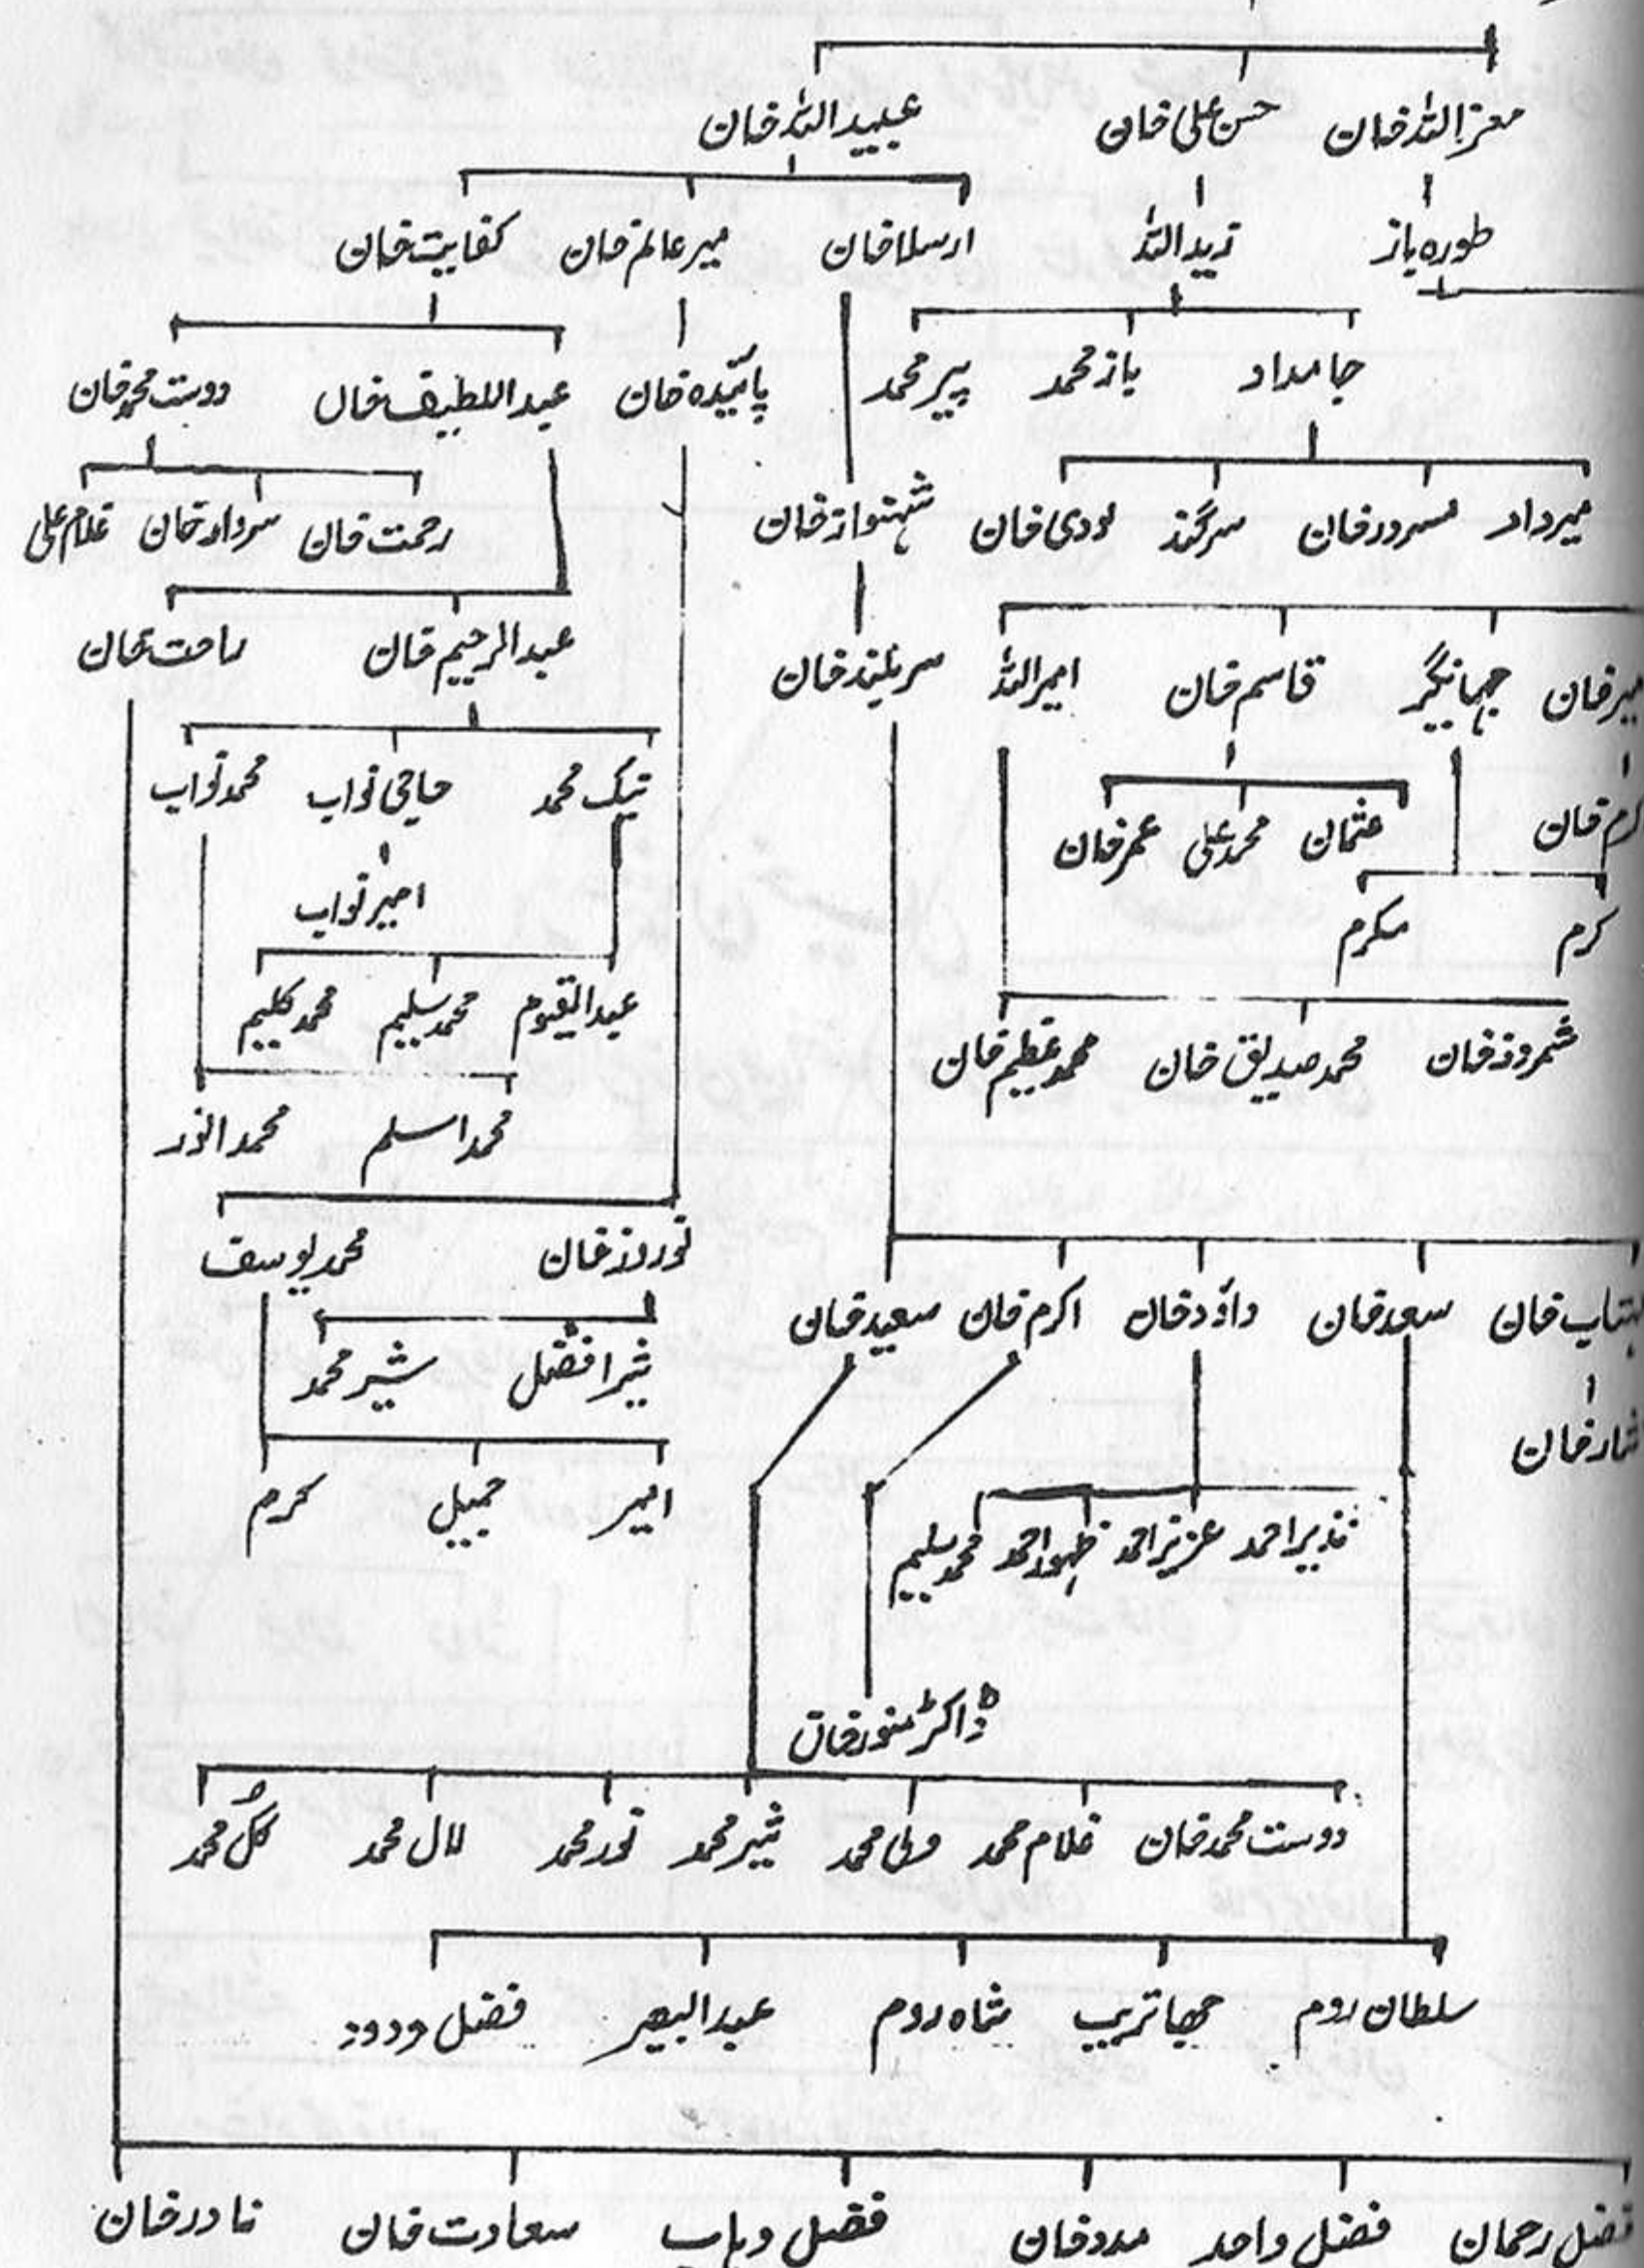 معزاللہ خان حسن علی خان عبیداللہ خان
طورہ باز زیداللہ ارسلا خان میر عالم خان کفایت خان
جامداد باز محمد پیر محمد پائیدہ خان عبداللطیف خان دوست محمد خان
میرداد سرور خان سرگند لودی خان شہنواز خان رحمت خان سردار خان غلام علی
جہانگیر قاسم خان امیراللہ سربلند خان عبدالرحیم خان راحت خان
عثمان محمد علی عمر خان نیک محمد حاجی نواب محمد نواب
کرم مکرم امیر نواب
شمروز خان محمد صدیق خان محمد عظیم خان عبدالقیوم محمد سلیم محمد کلیم
محمد اسلم محمد انور
نوروز خان محمد یوسف
سعد خان داؤد خان اکرم خان سعید خان شیر افضل شیر محمد
امیر جمیل کرم
نذیر احمد عزیز احمد ظہور احمد محمد سلیم
ڈاکٹر منور خان
دوست محمد خان غلام محمد ولی محمد شیر محمد نور محمد لال محمد گل محمد
سلطان روم شاہ روم عبدالبصر فضل ودود
فضل رحمان فضل واحد مدد خان فضل وہاب سعادت خان نادر خان